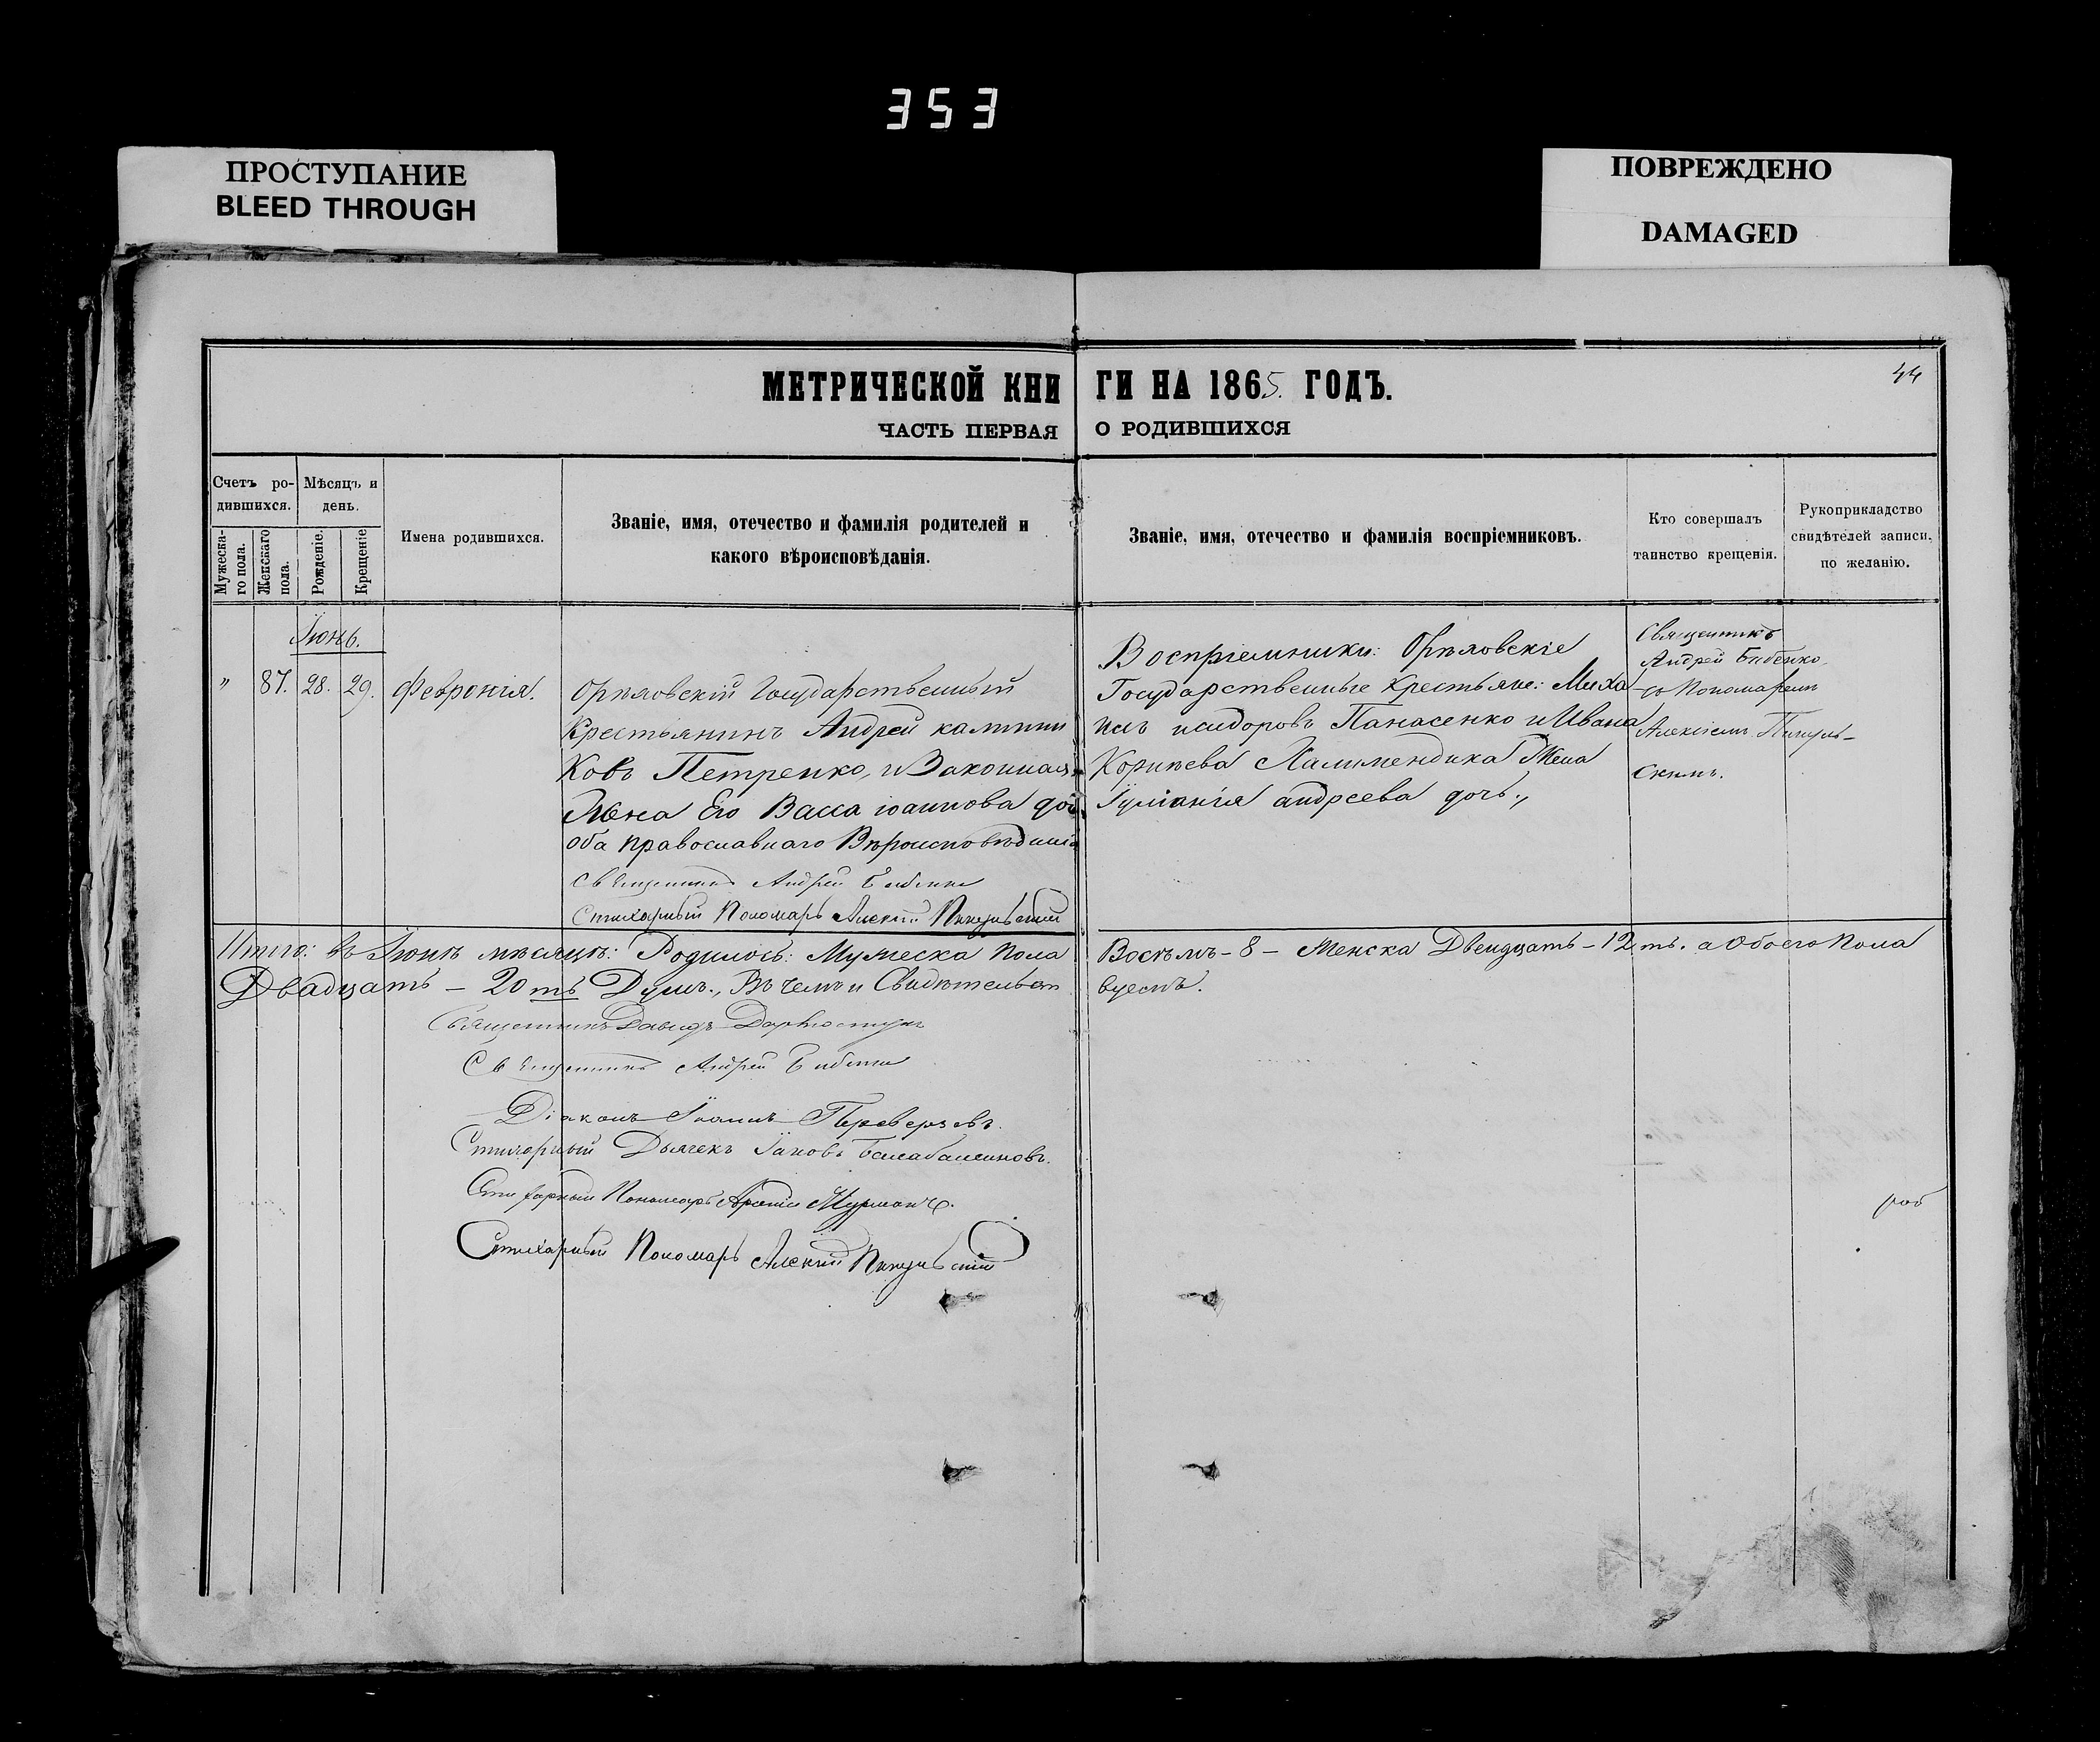 353
ПРОСТУПАНИЕ
BLEED THROUGH
ПОВРЕЖДЕНО
DAMAGED
МЕТРИЧЕСКОЙ КНИ ГИ НА 1865. ГОДЪ.
44
ЧАСТЬ ПЕРВАЯ О РОДИВШИХСЯ
Счетъ ро-
дившихся.
Мужеска-
го пола.
Женскаго
пола.
Мѣсяцъ и
день.
Рожденіе.
Крещеніе
Имена родившихся.
Званіе, имя, отечество и фамилія родителей и
какого вѣроисповѣданія.
Званіе, имя, отечество и фамилія воспріемниковъ.
Кто совершалъ
таинство крещенія.
Рукоприкладство
свидѣтелей записи,
по желанію.
Іюнь.
" 87. 28. 29. Февронія.
Орѣловскій Государственный
Крестьянинъ Андрей калинни
Ковъ Петренко, и Законная
Жена Его Васса іоаннова доч.
Оба православнаго Вѣроисповѣданія
Священникъ Андрей
Стихарный Пономарь Алексій
Воспріемники: Орѣловскіе
Государственные Крестьяне: Миха
илъ исидоровъ Панасенко и Ивана
Корнѣева Жена
Іуліанія андреева дочь.,
Священникъ
Андрей
съ Пономаремъ
Алексіемъ
Скимъ.
Итого: въ Іюнѣ мѣсяцѣ: Родилось: Мужеска Пола Восѣмъ - 8 - Женска Двенадцать - 12ть. а Обоего Пола
Двадцать - 20ть Душъ., Въ чемъ и Свидѣтельст вуемъ.
Священникъ Давидъ
Священникъ Андрей
Діаконъ Іоаннъ Переверзевъ.
Стихарный Дьячекъ Іаковъ
Стихарный Пономарь
Стихарный Пономарь Алексій